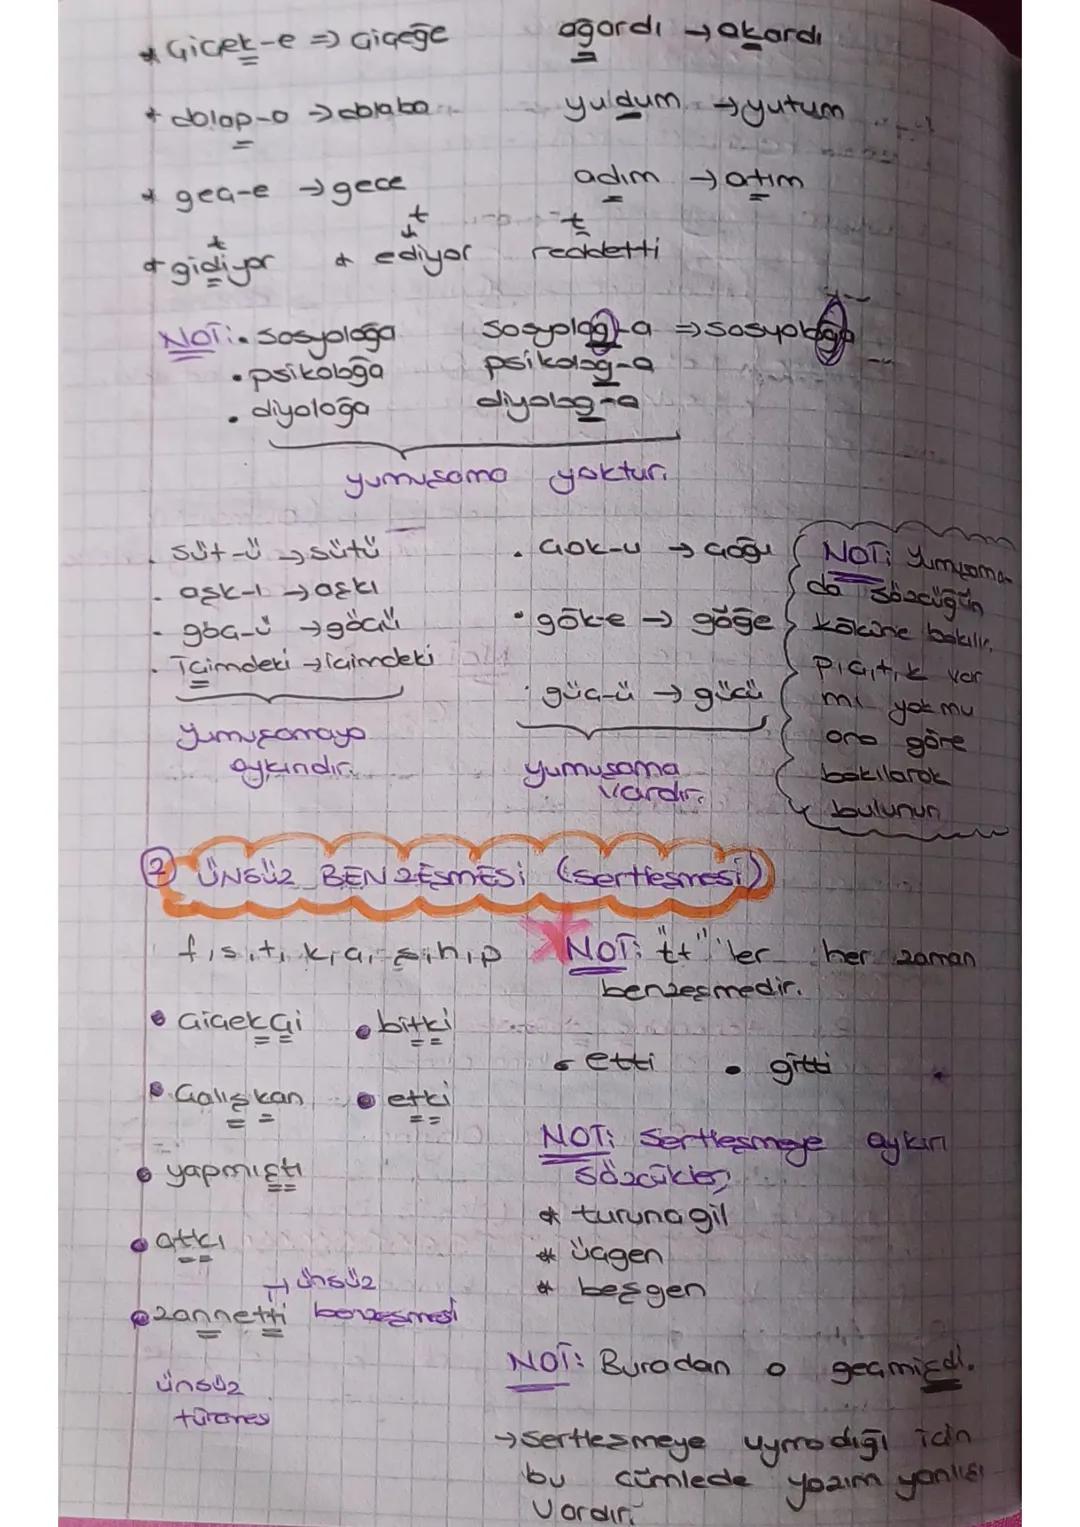 * Çiçek-e => Çiçeğe
ağardı → akardı
* dolap-a → dolaba
yuldum → yutum
* geç-e → gece
adım → atım
t
t
t
* gidiyor * ediyor reddetti
NOT: • Sosyoloğa
• psikoloğa
• diyoloğa
Sosyolog-a => Sosyoloğa
psikolog-a
diyolog-a
yumuşama yoktur.
• Süt-ü → sütü
• aşk-ı → aşkı
• göç-ü → göçü
• İçimdeki → içimdeki
Yumuşamaya
aykırıdır.
• Çok-u → Çoğu
• gök-e → göğe
• güç-ü → gücü
yumuşama
vardır.
NOT: Yumuşama-
da sözcüğün
köküne bakılır.
p,ç,t,k var
mı yok mu
ona göre
bakılarak
bulunur.
2 ÜNSÜZ BENZEŞMESİ (sertleşmesi)
f, s, t, k, ç, ş, h, p
• Çiçekçi • bitki
• Çalışkan • etki
• yapmıştı
• atkı
→ ünsüz
• zannetti benzeşmesi
ünsüz
türemes
NOT: "tt" ler her zaman
benzeşmedir.
• etti • gitti
NOT: Sertleşmeye aykırı
sözcükler;
* turunçgil
* üçgen
* beşgen
NOT: Buradan o geçmişdi.
→ Sertleşmeye uymadığı için
bu cümlede yazım yanlışı
Vardır.